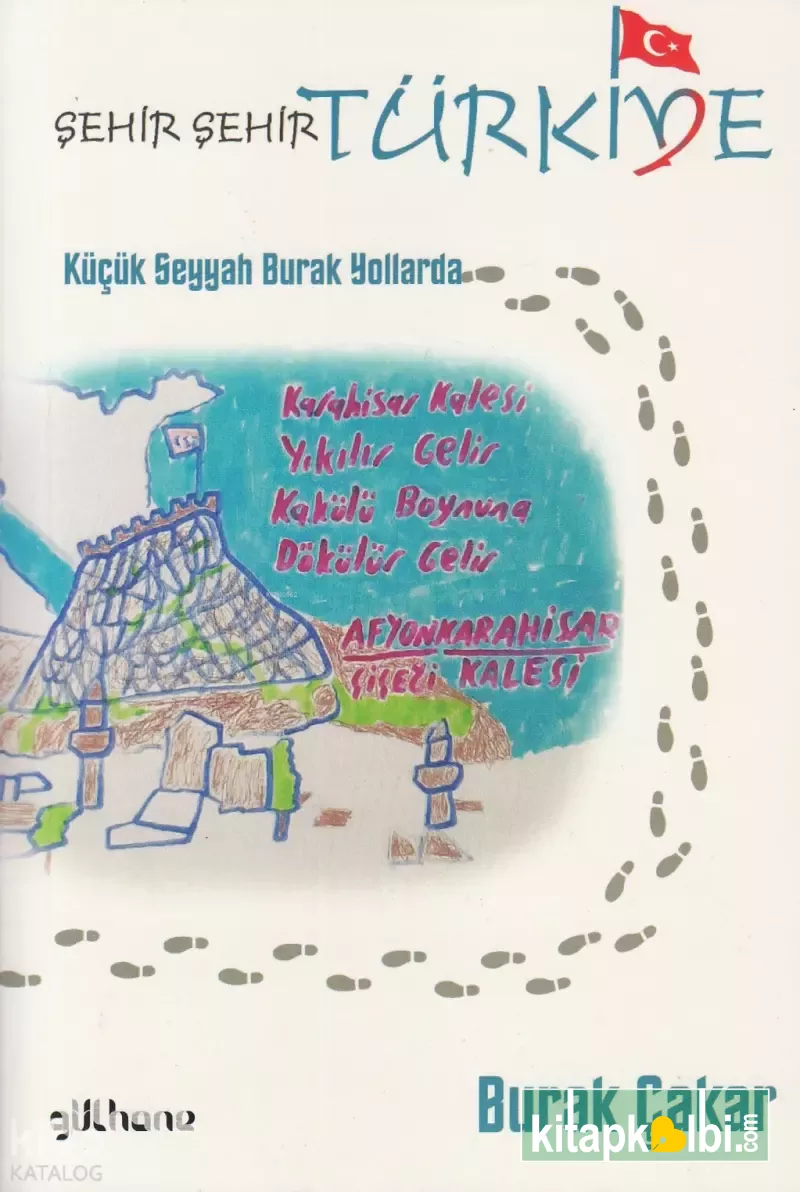 ŞEHİR ŞEHİR TÜRKİYE
Küçük Seyyah Burak Yollarda
Karahisar Kalesi
Yıkılır Gelir
Kakülü Boynuna
Dökülür Gelir
AFYONKARAHİSAR
KALESİ
gülhane
Burak Çakar
kitapkalbi.com
KATALOG